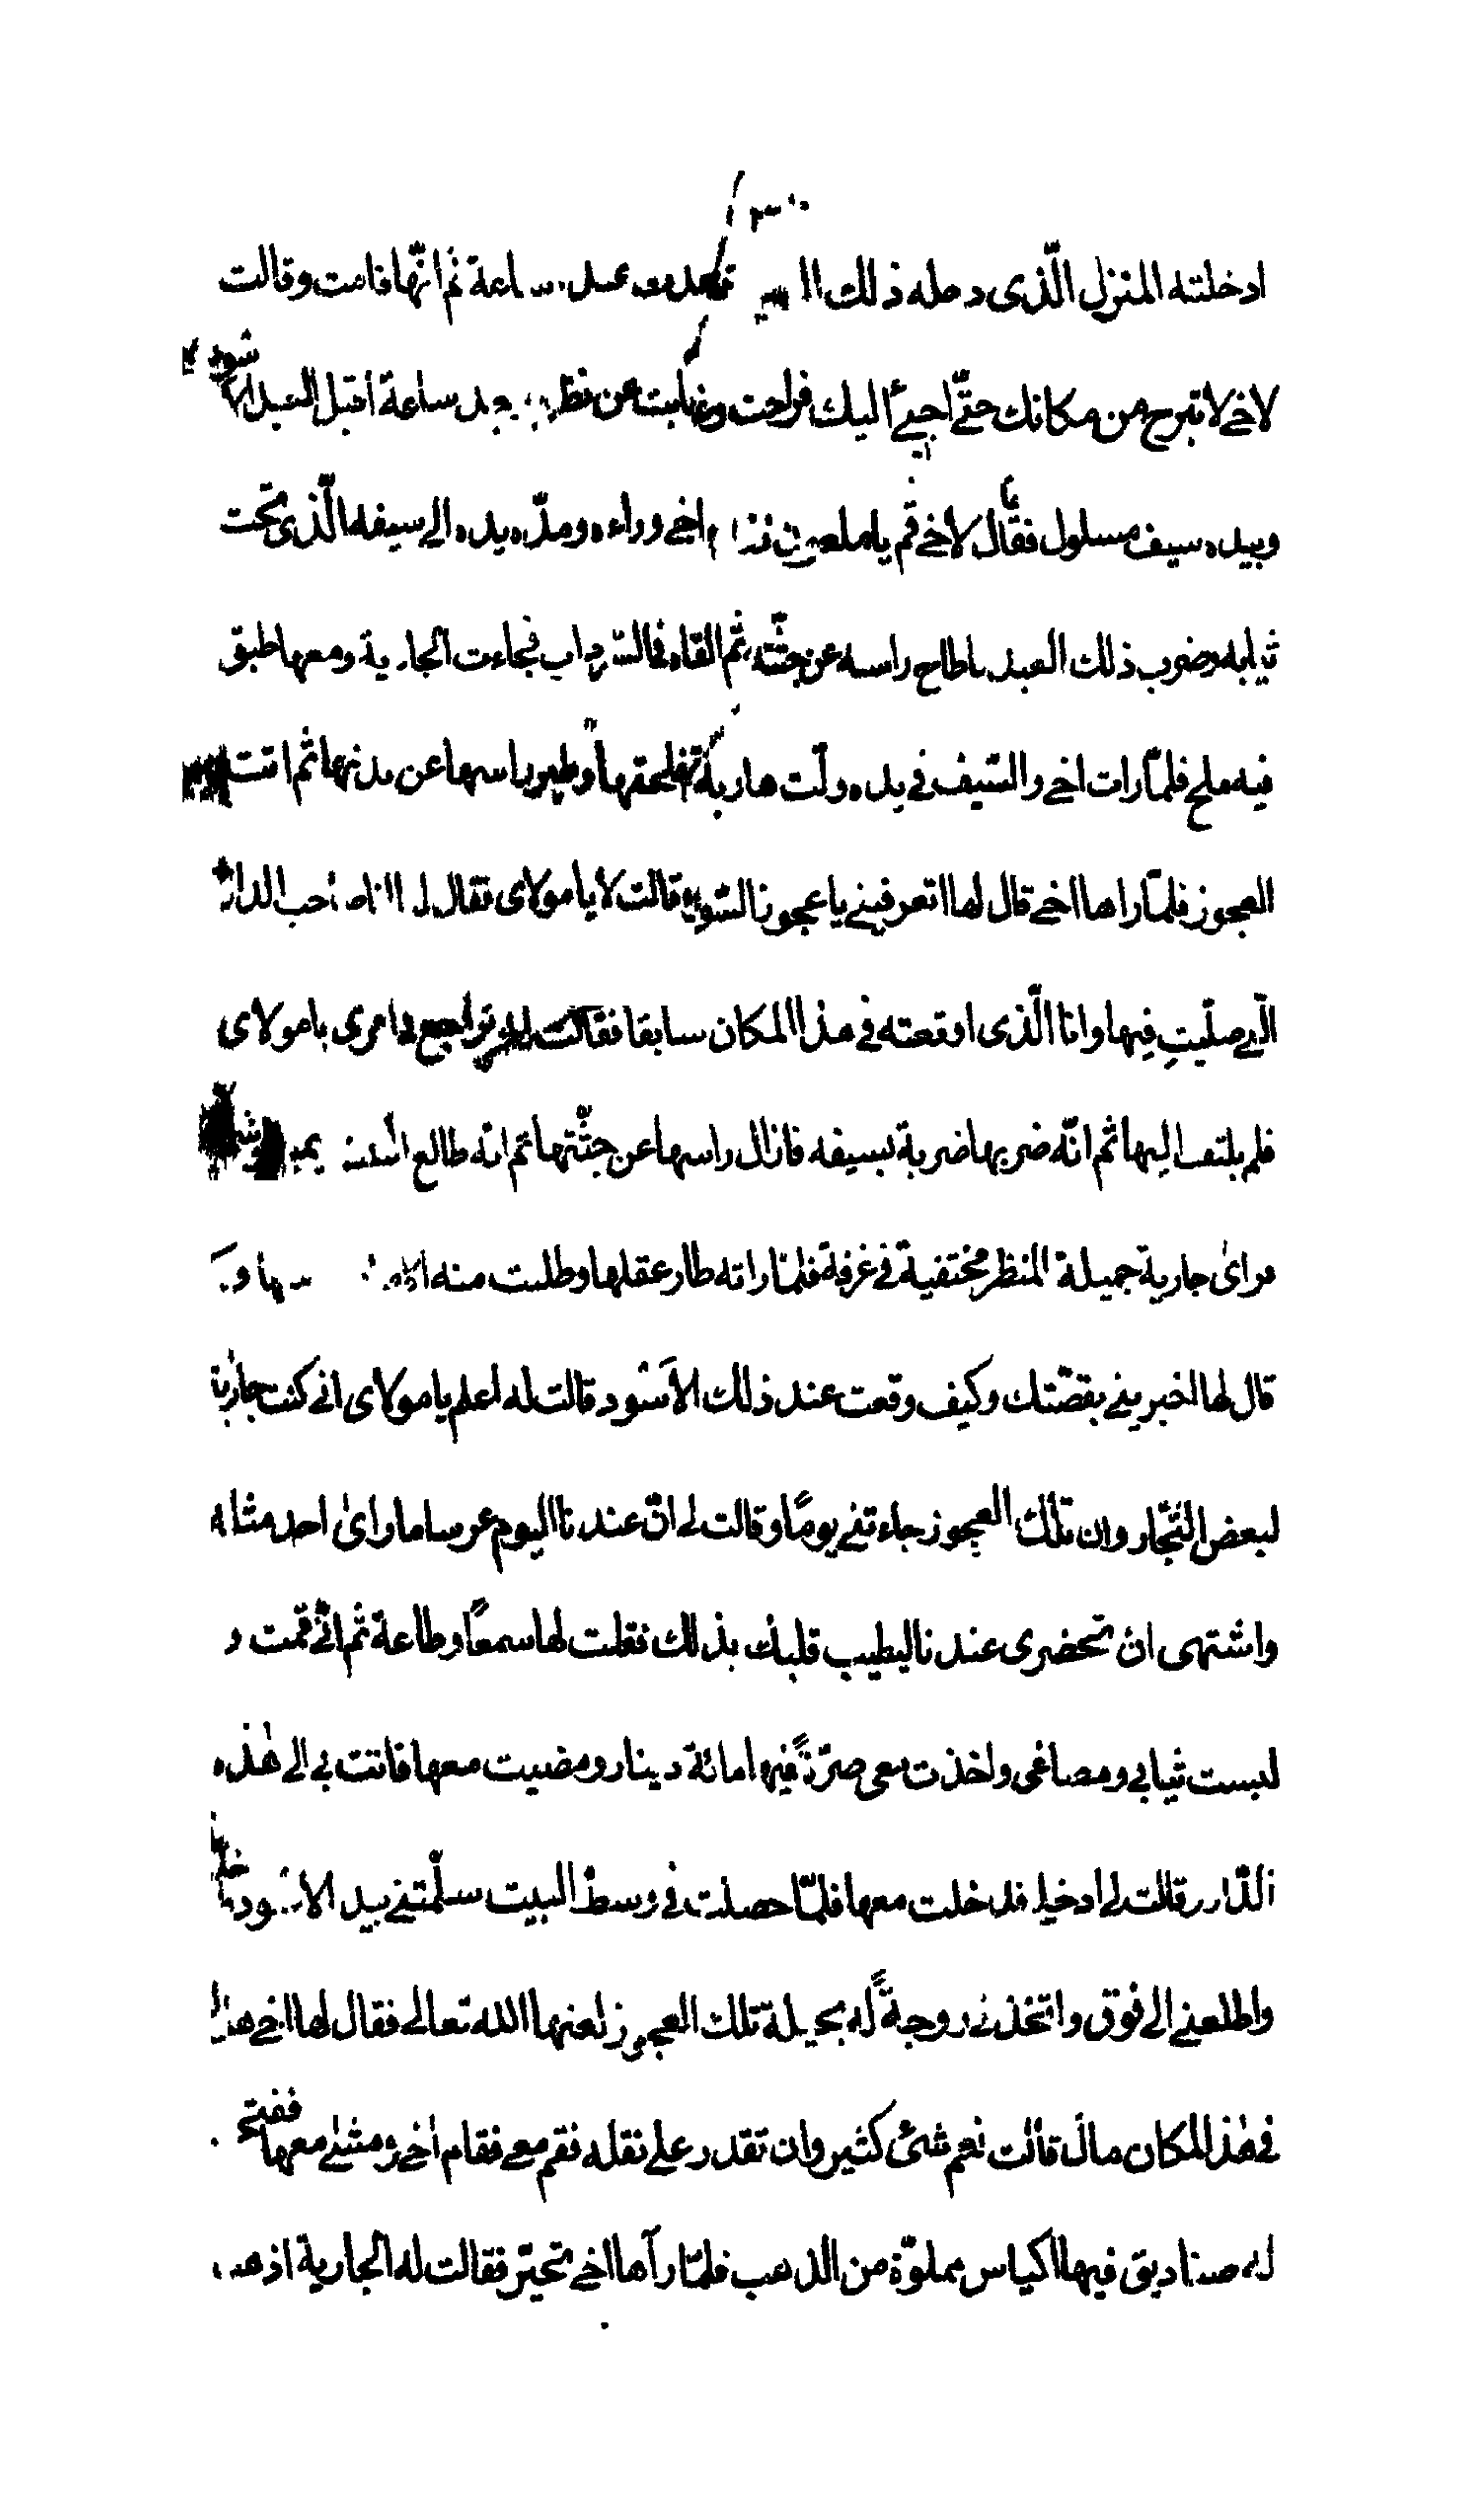 ادخلته المنزل الّذى دخله ذلك ساعة ثم انّها قامت وقالت
لاخى لا تبرح من مكانك حتّى اجىء اليك فراحت وغابت عن بعد ساعة اقبل العبد
وبيده سيف مسلول فقال لاخى قم يا اخى وراءه ومدّ يده الى سيفه الّذى تحت
ثيابه وضرب ذلك العبد اطاح راسه عن جثّته ثم القاه فجاءت الجارية ومعها طبق
فيه ملح فلمّا رات اخى والسّيف فى يده ولّت هاربة فلحقها وطير راسها عن بدنها ثم اتت
العجوز فلمّا راها اخى قال لها اتعرفينى يا عجوز السّوء قالت لا يا مولاى فقال انا صاحب الدار
الّتى صلّيت فيها وانا الّذى اوقعته فى هذا المكان سابقا فقالت يا مولاى
فلم يلتفت اليها ثم انّه ضربها ضربة بسيفه فازال راسها عن جثّتها ثم انه طالع
فراى جارية جميلة المنظر مختفية فى غرفة فلمّا راته طار عقلها وطلبت منه
قال لها اخبرينى بقصّتك وكيف وقعت عند ذلك الاسود قالت له اعلم يا مولاى انى كنت جارية
لبعض التّجّار وان تلك العجوز جاءتنى يومًا وقالت لى انّ عندنا اليوم عرسا ما راى احد مثله
واشتهى ان تحضرى عندنا ليطيب قلبك بذلك فقلت لها سمعًا وطاعة ثم انّى قمت و
لبست ثيابى ومصاغى واخذت معى صرّةً فيها مائة دينار ومضيت معها فاتت بى الى هذه
الدّار وقالت لى ادخلى فدخلت معها فلمّا حصلت فى وسط البيت سلّمتنى بيد الاسود
واطلعنى الى فوق واتّخذنى زوجةً له بحيلة تلك العجوز لعنها الله تعالى فقال لها اخى هل
فى هذا المكان مال قالت نعم شىء كثير وان تقدر على نقله فقم معى فقام اخى ومشى معها ففتح
له صناديق فيها اكياس مملوّة من الذهب فلمّا رآها اخى تحيّر فقالت له الجارية اذهب